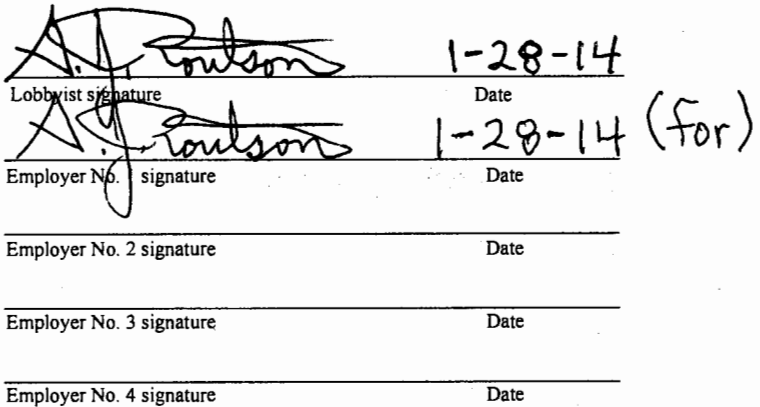 A.J. Poulson 1-28-14
Lobbyist signature Date
A.J. Poulson 1-28-14 (for)
Employer No. 1 signature Date
Employer No. 2 signature Date
Employer No. 3 signature Date
Employer No. 4 signature Date